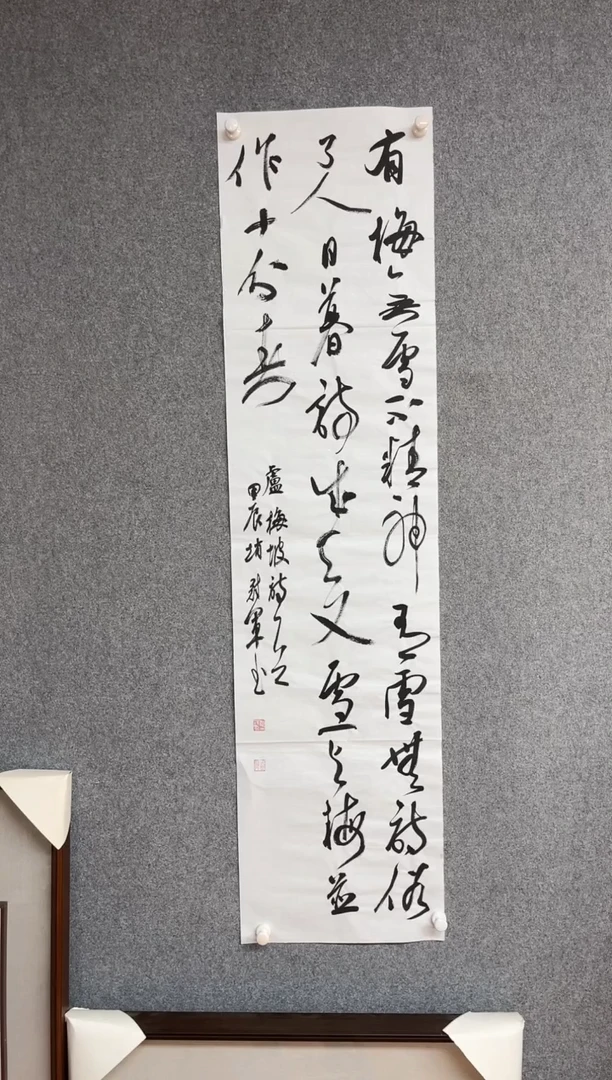 有梅無雪不精神有雪無詩俗
了人日暮詩成天又雪與梅並
作十分春
盧梅坡詩一首
甲辰 軍書